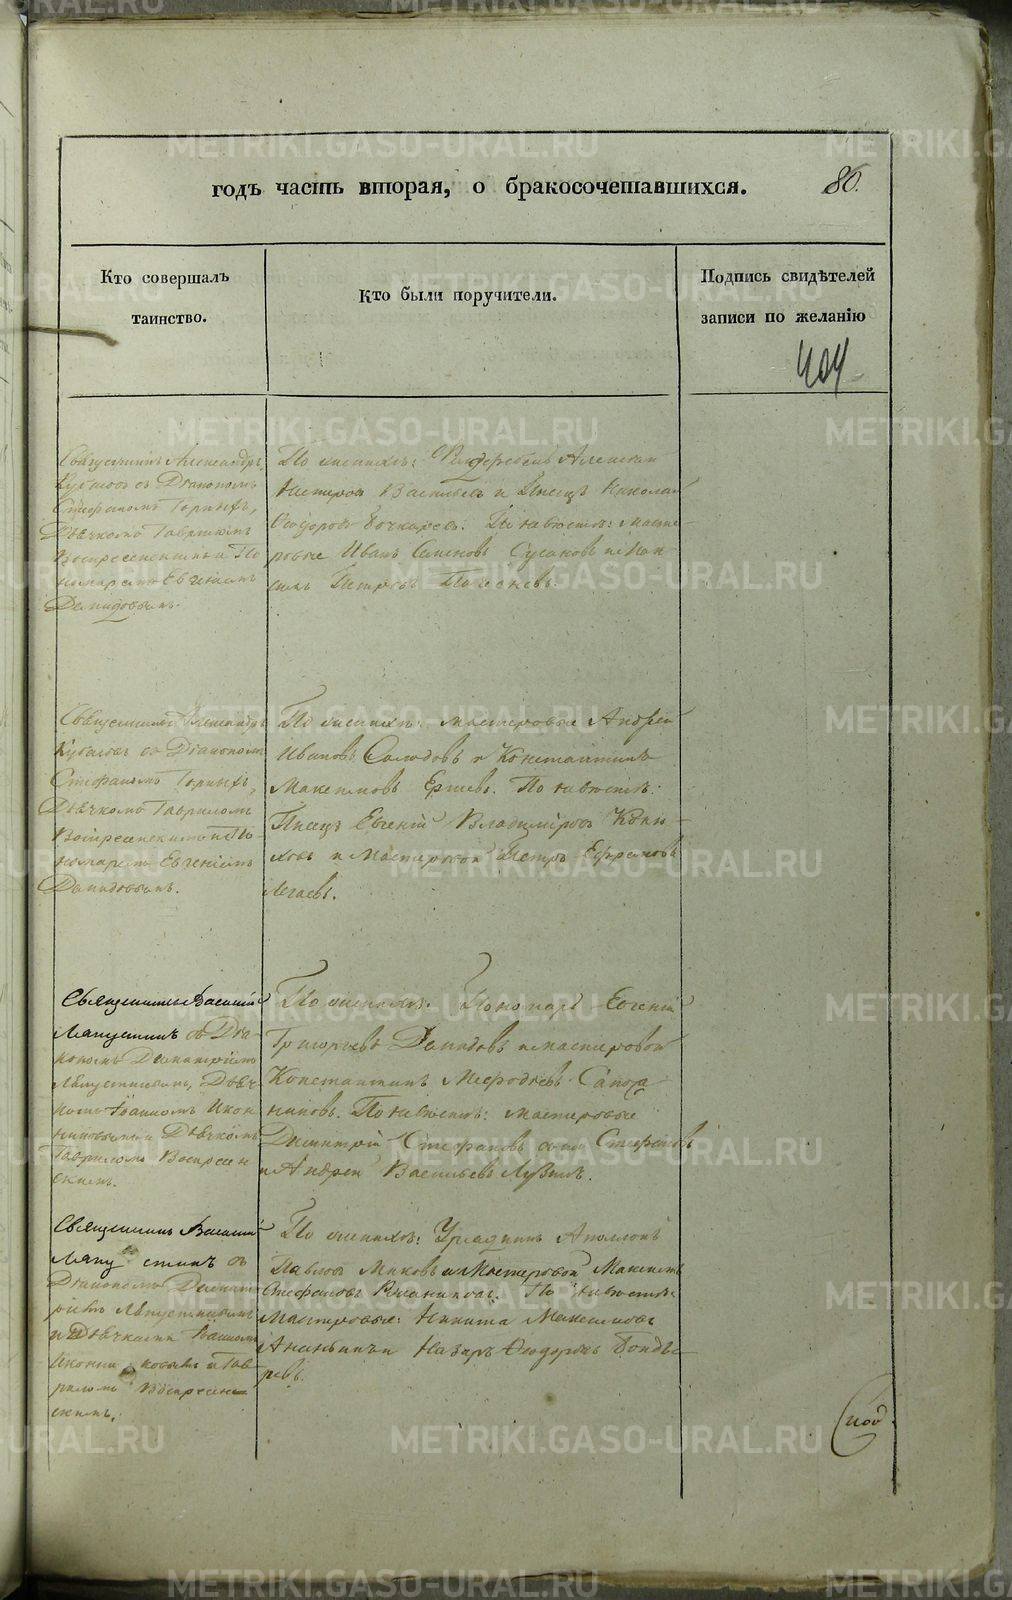 METRIKI.GASO-URAL.RU
годъ часть вторая, о бракосочетавшихся.
86.
Кто совершалъ
таинство.
Кто были поручители.
Подпись свидѣтелей
записи по желанію
404
Священникъ Александръ
съ Діакономъ
Стефаномъ Горныхъ,
Дьячкомъ Гавріиломъ
Воскресенскимъ и По
номаремъ Евгеніемъ
Демидовымъ.
По женихѣ: Алексѣй
Нестеровъ Васильевъ и Писецъ Николай
Ѳеодоровъ Бочкаревъ. По невѣстѣ: Масте
ровые Иванъ Семеновъ Сусановъ и
Петровъ
Священникъ Александръ
со Діакономъ
Стефаномъ Горныхъ,
Дьячкомъ Гавриломъ
Воскресенскимъ и По
номаремъ Евгеніемъ
Демидовымъ.
По женихѣ: мастеровые Андрей
Ивановъ и Константинъ
Максимовъ Ершевъ. По невѣстѣ:
Писецъ Евгеній Владиміровъ Коню
ховъ и Мастеровой Петръ Ефремовъ
Легаевъ.
Священникъ Василій
Ляпустинъ съ Діа
кономъ Димитріемъ
Ляпустинымъ, Дьяч
комъ Іоанномъ Икон
никовымъ и Дьячкомъ
Гавриломъ Воскресен
скимъ.
По женихѣ: Пономарь Евгеній
Григорьевъ Демидовъ и мастеровой
Константинъ Меѳодіевъ Сапожн
никовъ. По невѣстѣ: мастеровые
Димитрій Стефановъ
и Андрей Васильевъ Лузинъ.
Священникъ Василій
Ляпустинъ съ
Діакономъ Димит
ріемъ Ляпустинымъ
и Дьячками Іоанномъ
Иконниковымъ и Гав
риломъ Воскресен
скимъ.
По женихѣ: Урядникъ Аполлонъ
Павловъ Миковъ и Мастеровой Максимъ
Стефановъ По невѣстѣ:
Мастеровые: Никита Максимовъ
Ананьинъ и Назаръ Ѳеодоровъ Бонда
ревъ.